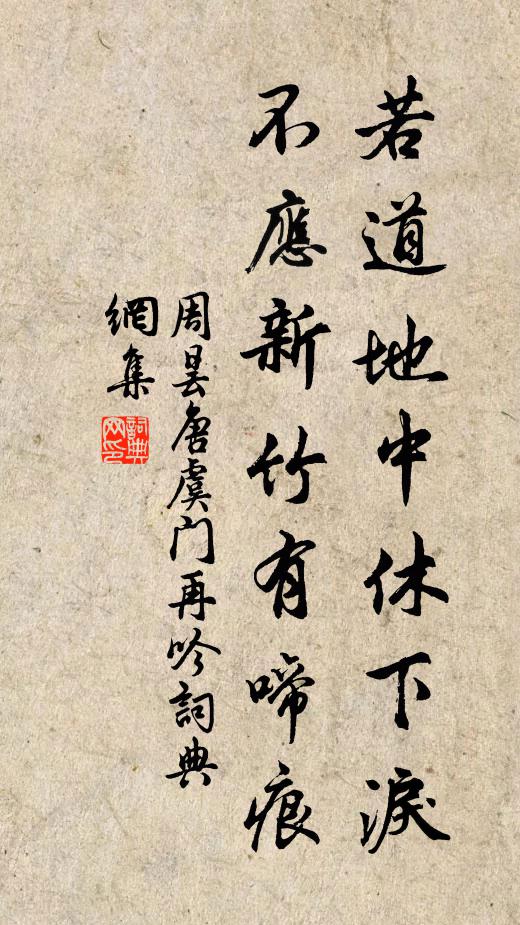 若道地中休下淚
不應新竹有啼痕
周曇唐虞門再吟詞典
網集
詞典
网印